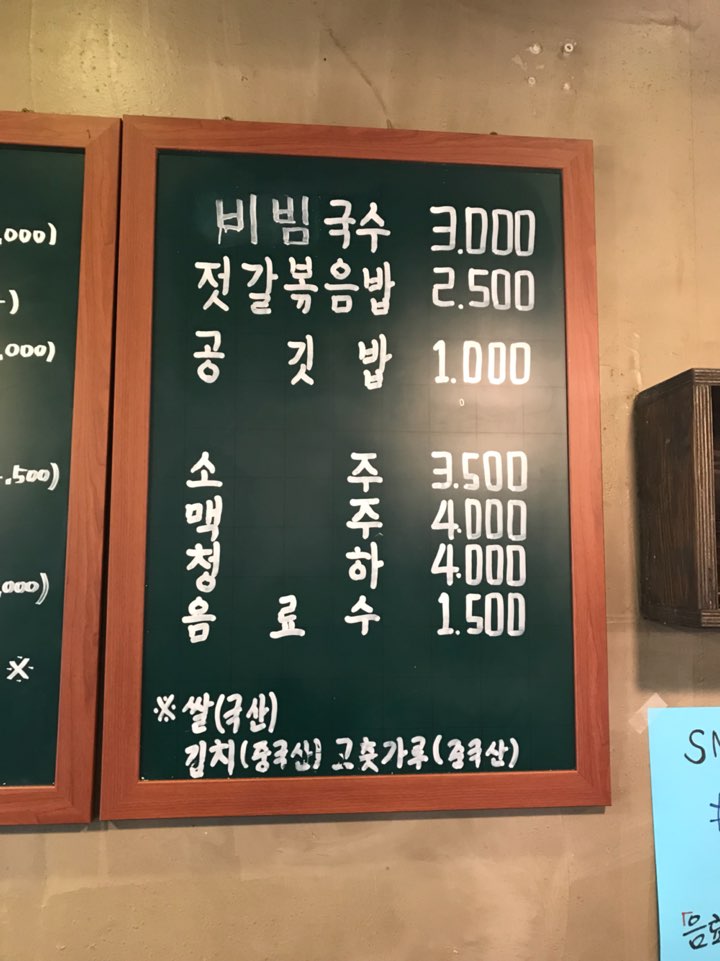 ,000)
,000)
.500)
,000)
※
비빔국수 3.000
젓갈볶음밥 2.500
공깃밥 1.000
소주 3.500
맥주 4.000
청하 4.000
음료수 1.500
※ 쌀(국산)
김치(중국산) 고춧가루(중국산)
「음료